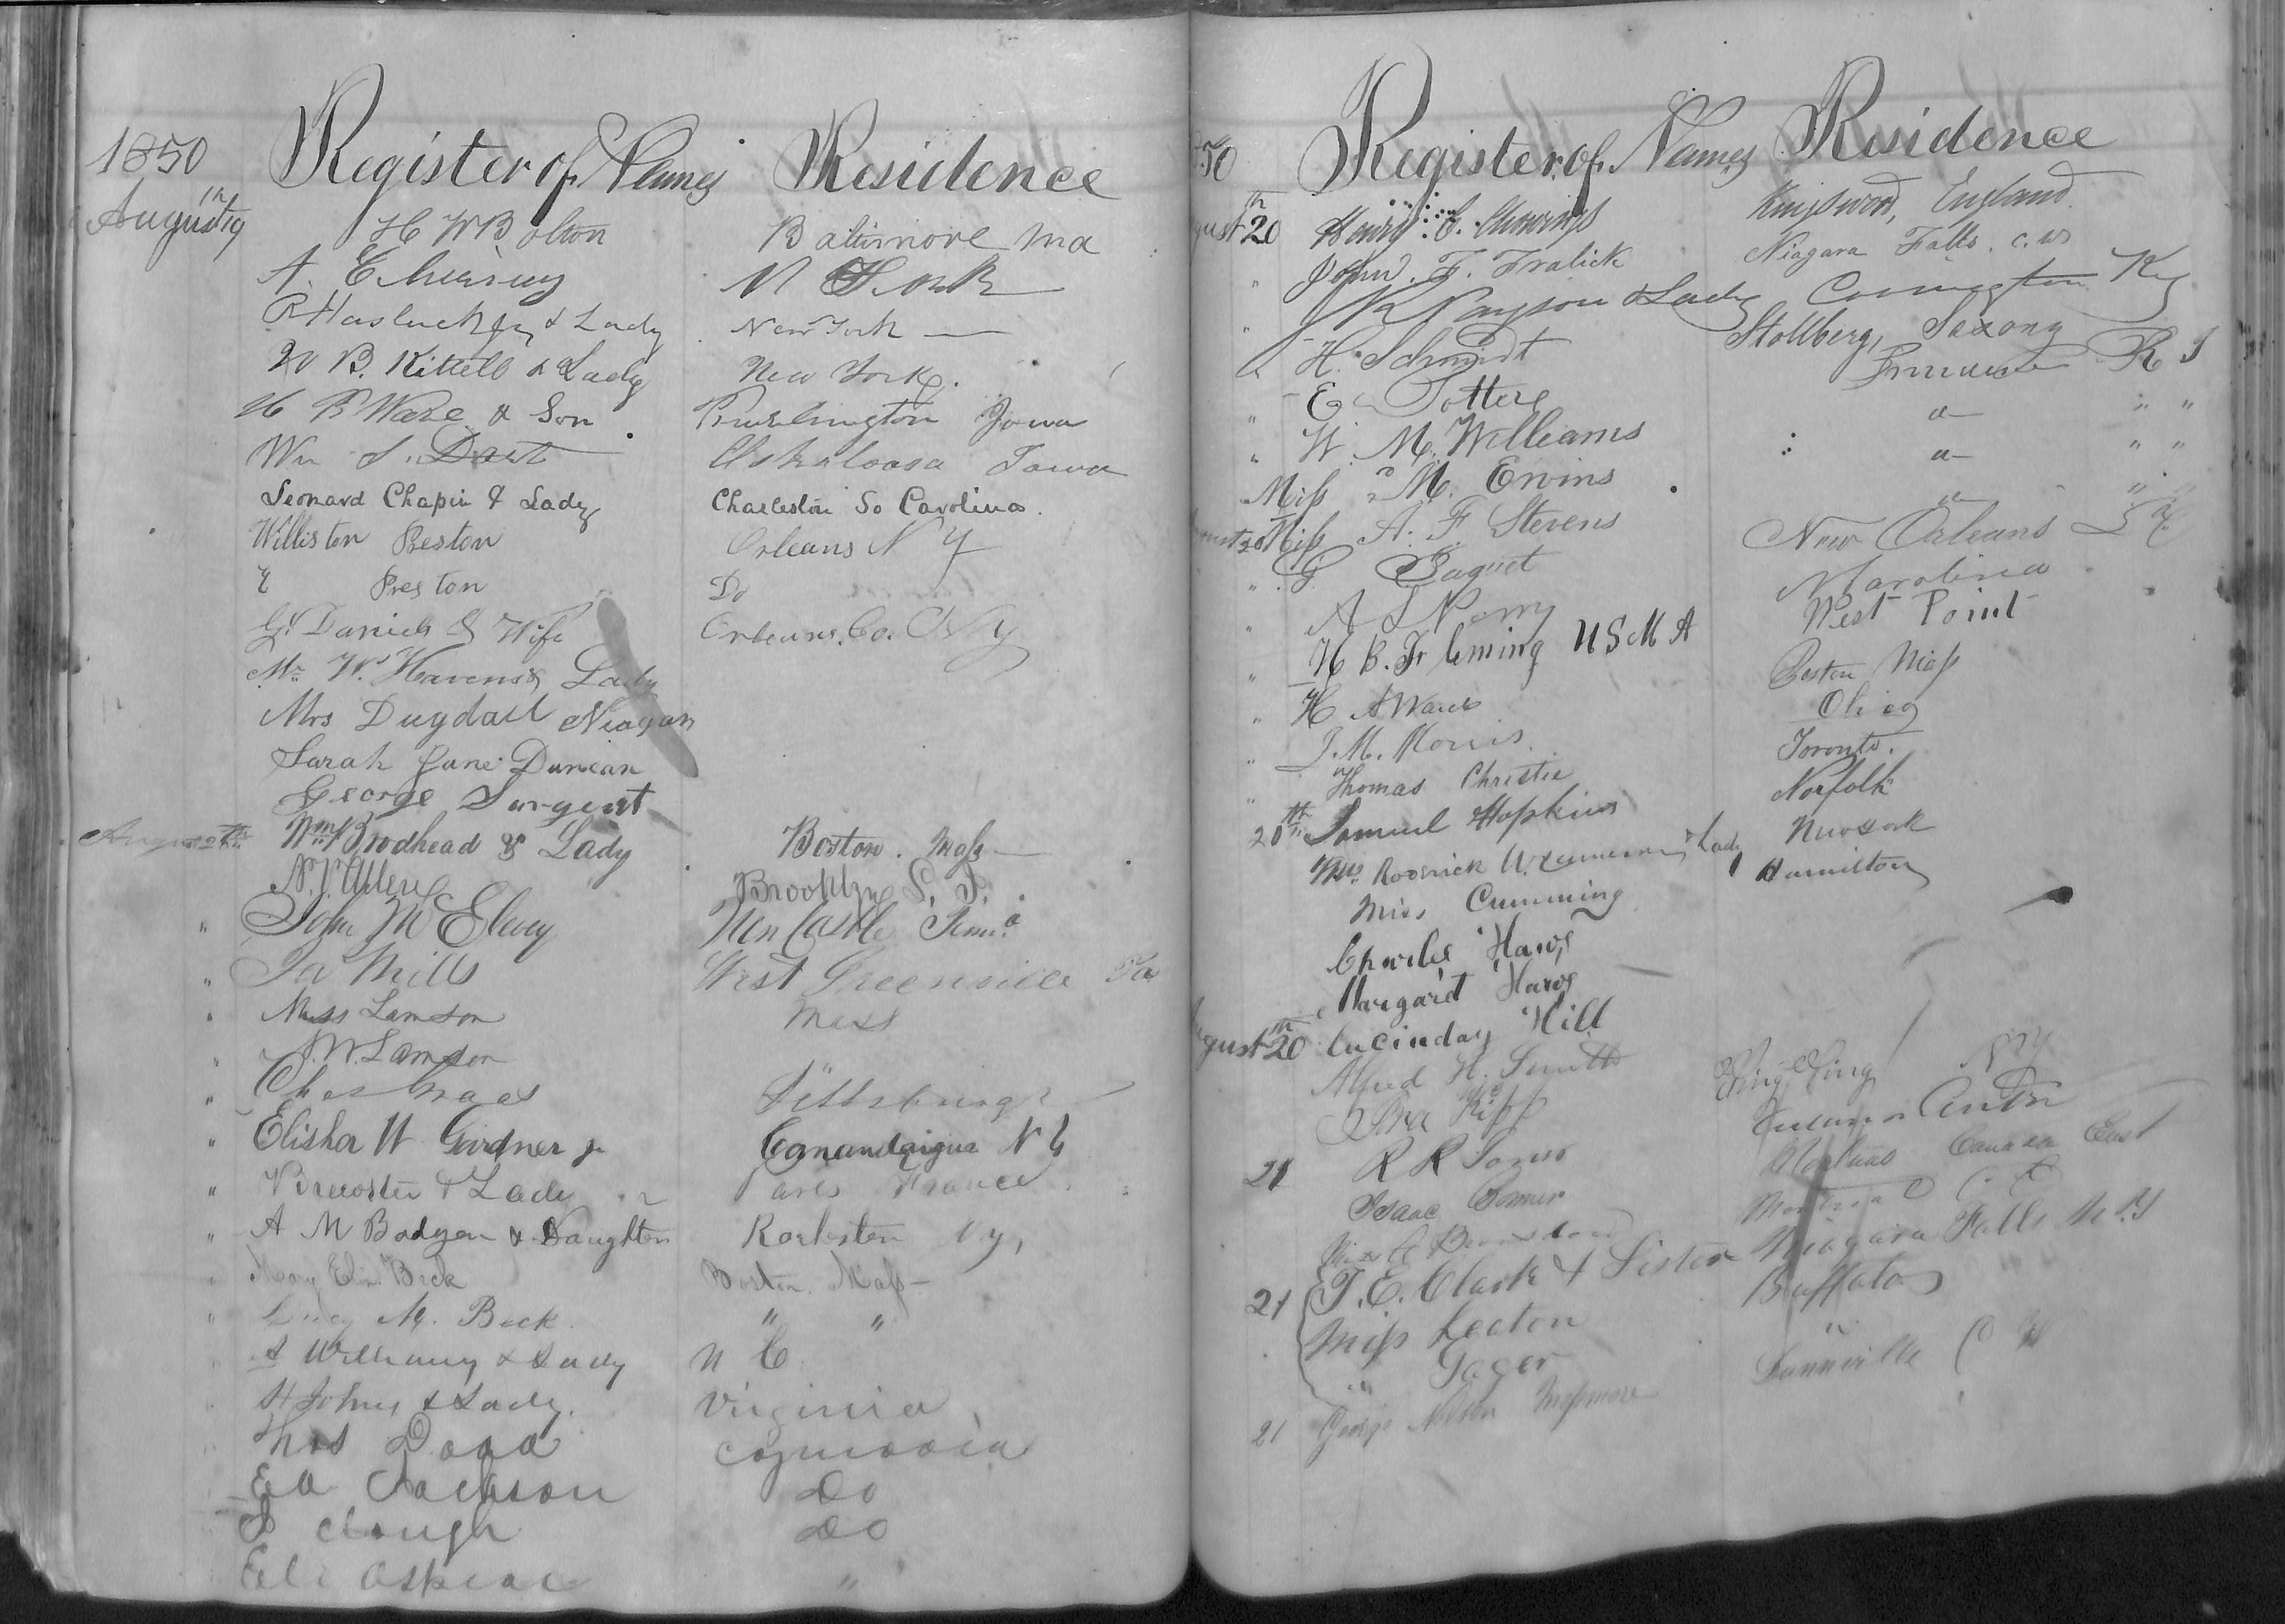 1850 Register of Names Residence
August 19th H W Bolton Baltimore Md
A. E N York
P Hasluck Jr & Lady New York
B. Kittell & Lady New York.
H B Ware & Son Burlington Iowa
Wm S. Dart Oskaloosa Iowa
Leonard Chapin & Lady Charleston So Carolina.
Williston Preston Orleans N Y
E Preston Do
G. Daniels & Wife Orleans. Co. N y
Mr W. Havens & Lady
Mrs Dugdall Niagara
Sarah Jane Duncan
George Sargent
August 20th Wm Brodhead & Lady Boston. Mass
N. V. Allen Brooklyn L. I.
" John McElevy New Castle Penna
" Ja Mills West Greenville Pa
" Miss Lamson Mass
" N. W. Lamson "
" Chas Pittsburgh
" Elisha W Gardner Jr Canandaigua N Y
" & Lady Paris France
" A M Badger & Daughter Rochester N y,
" Mary Beck Boston Mass
" Lucy M. Beck " "
" S Williams & Lady N C
" H Johns & Lady. Virginia
Thos Dodd
Ed Jackson Do
S Clough Do
Eli "
50 Register of Names Residence
August 20th Henry C. Kingswood, England.
" John. F. Fralick Niagara Falls. C. W
" Payson & Lady Covington Ky
" H. Schmidt Stollberg, Saxony
E Potter R I
" W. M. Williams " "
" Miss M. Ervins " "
August 20 Miss A. F. Stevens "
" G Paquet New Orleans La
" A S N Carolina
" H B. Fleming U S M A West Point
" H A Ware Boston Mass
" J. M. Morris Ohio
" Thomas Christie Toronto.
20th Samuel Hopkins Norfolk
Roderick W. Cameron & Lady New York
Miss Cumming Hamilton
Charles Haws
Margart Haws
August 20th Lucinday Hill
Alfred H. Smith Sing Sing N Y
Ira Kipp
21 R R Somer Canada East
Isaac Somer Montreal C E
Miss
21 T. E. Clark & Sister Niagara Falls N. Y
Miss Lecton Buffalo
" Gager "
21 George Nelson Dunnville C W